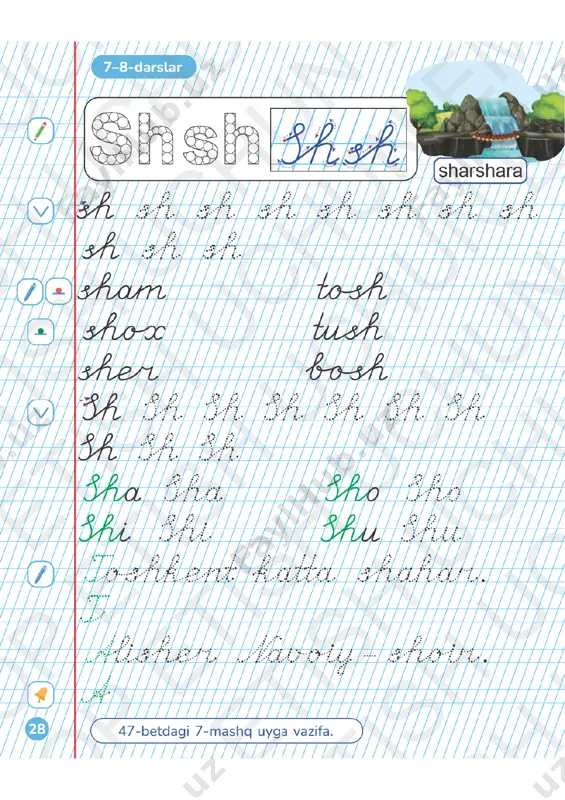 7–8-darslar
Sh sh Sh sh
sharshara
sh sh sh sh sh sh sh sh
sh sh sh
sham tosh
shox tush
sher bosh
Sh Sh Sh Sh Sh Sh Sh
Sh Sh Sh
Sha Sha Sho Sho
Shi Shi Shu Shu
Toshkent katta shahar.
T
Alisher Navoiy – shoir.
A
28
47-betdagi 7-mashq uyga vazifa.